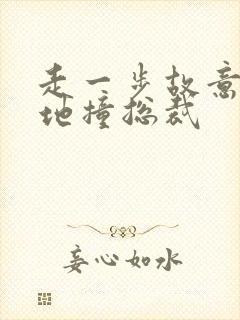 走一步故意
地撞总裁
妄心如水